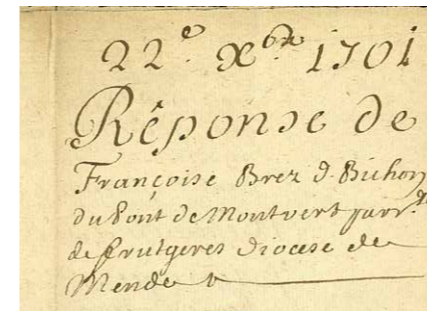 22.e Xbre 1701
Rêponse de
Françoise Brez d. Bichon
du Pont de Montvert parr.
de frutgeres Diocese de
Mende